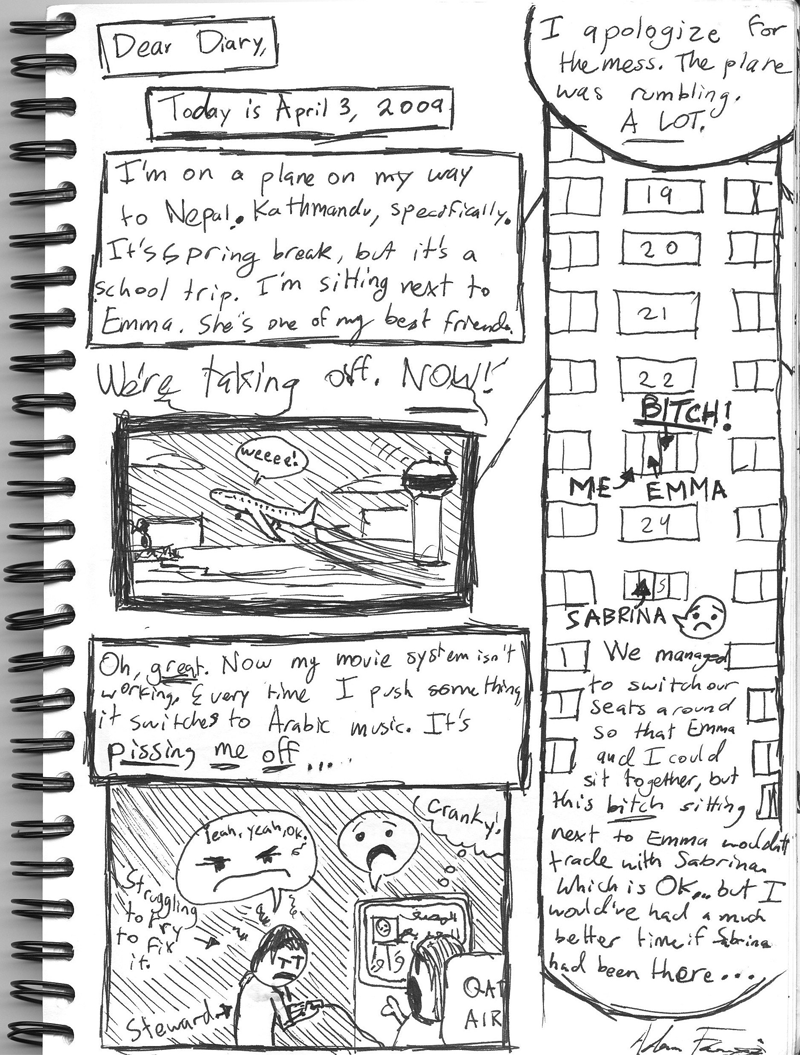 Dear Diary,
Today is April 3, 2009
I'm on a plane on my way
to Nepal. Kathmandu, specifically.
It's spring break, but it's a
school trip. I'm sitting next to
Emma. She's one of my best friends.
We're taking off. NOW!
weeee!
Oh, great. Now my movie system isn't
working. Every time I push something,
it switches to Arabic music. It's
pissing me off....
Yeah, yeah, ok.
Cranky!
Struggling
to try
to fix
it.
Steward
QAT
AIR
I apologize for
the mess. The plane
was rumbling.
A LOT.
19
20
21
22
BITCH!
ME EMMA
24
S
SABRINA
We managed
to switch our
seats around
so that Emma
and I could
sit together, but
this bitch sitting
next to Emma wouldn't
trade with Sabrina.
Which is OK... but I
would've had a much
better time if Sabrina
had been there...
Adam